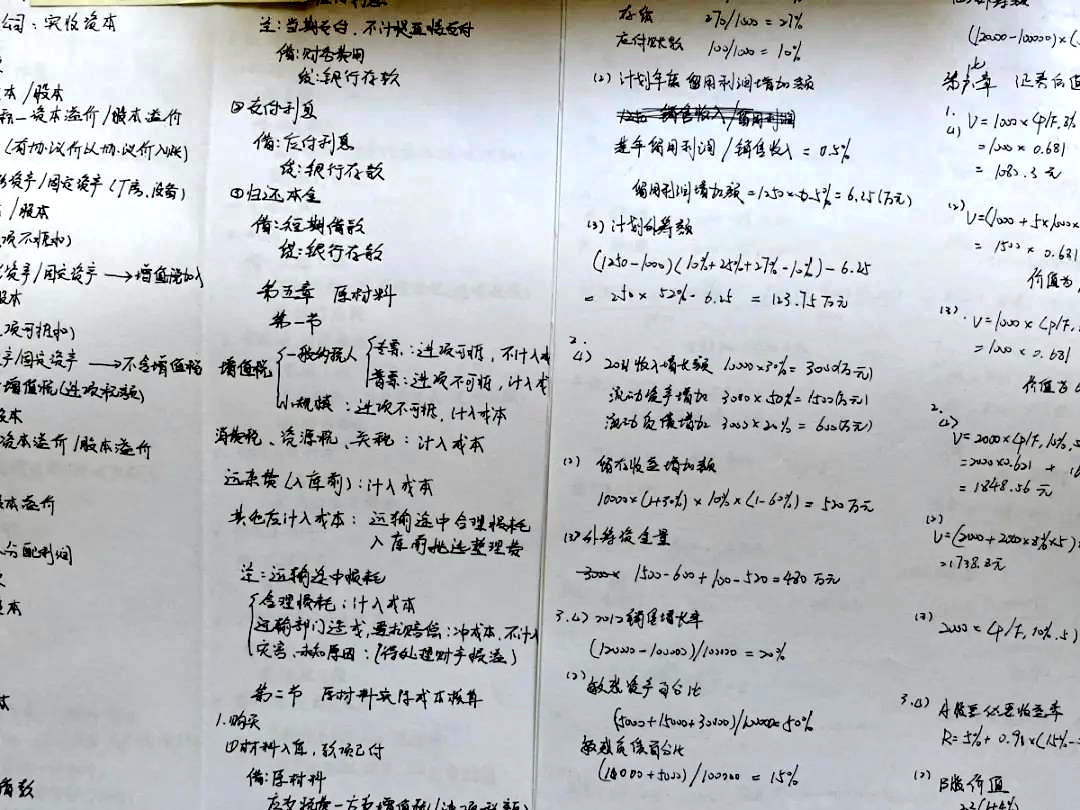 公司：实收资本
本/股本
资本溢价/股本溢价
(有协议价以协议价入账)
资产/固定资产（厂房、设备）
/股本
项不抵扣)
资产/固定资产→增值税加入
股本
项可抵扣)
产/固定资产→不含增值税
增值税(进项税额)
股本
资本溢价/股本溢价
股本溢价
分配利润
本
注：当期支付，不计提直接支付
借：财务费用
贷：银行存款
②支付利息
借：应付利息
贷：银行存款
③归还本金
借：短期借款
贷：银行存款
第五章 原材料
第一节
增值税
一般纳税人
专票：进项可抵，不计入成
普票：进项不可抵，计入成
小规模：进项不可抵，计入成本
消费税、资源税、关税：计入成本
运杂费(入库前)：计入成本
其他应计入成本：运输途中合理损耗
入库前挑选整理费
注：运输途中损耗
合理损耗：计入成本
运输部门造成，要求赔偿：冲成本，不计入
灾害、未知原因：(待处理财产损溢)
第二节 原材料实际成本核算
1.购买
①材料入库，款项已付
借：原材料
存货 270/1000 = 27%
应付账款 100/1000 = 10%
(2) 计划年度留用利润增加额
销售收入/留用利润
基年留用利润/销售收入 = 0.5%
留用利润增加额=1250×0.5%=6.25(万元)
(3) 计划外筹额
(1250-1000)(10%+25%+27%-10%)-6.25
= 250×52%-6.25 = 123.75万元
2.
(1) 2011收入增长额 10000×30%=3000(万元)
流动资产增加 3000×50%=1500(万元)
流动负债增加 3000×20%=600(万元)
(2) 留存收益增加额
10000×(1+30%)×10%×(1-60%)=520万元
(3)外筹资金量
3000× 1500-600+100-520=480万元
3.(1)2012销售增长率
(120000-100000)/100000=20%
(2)敏感资产百分比
(5000+15000+30000)/100000=50%
敏感负债百分比
(10000+5000)/100000=15%
(120000-100000)×(
证券价值
1.
(1) V=1000×(P/F,8%
=1000×0.681
=1082.3元
(2)
V=(1000+5×1000×
=1500×0.681
价值为
(3).
V=1000×(P/F,
=1000×0.681
价值为
2.
(1)
V=2000×(P/F,10%,5
=2000×0.621+
=1848.56元
(2)
V=(2000+2000×8%×5)
=1738.8元
(3) 2000×(P/F,10%,5)
3.(1) A股必要收益率
R=5%+0.9×(15%-
(2) B股价值